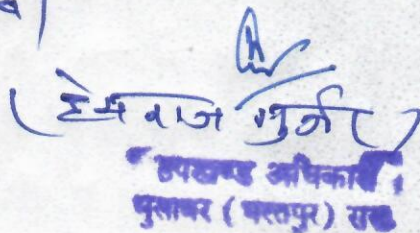 (हेमराज गुर्जर)
उपखण्ड अधिकारी
भुसावर (भरतपुर) राज०